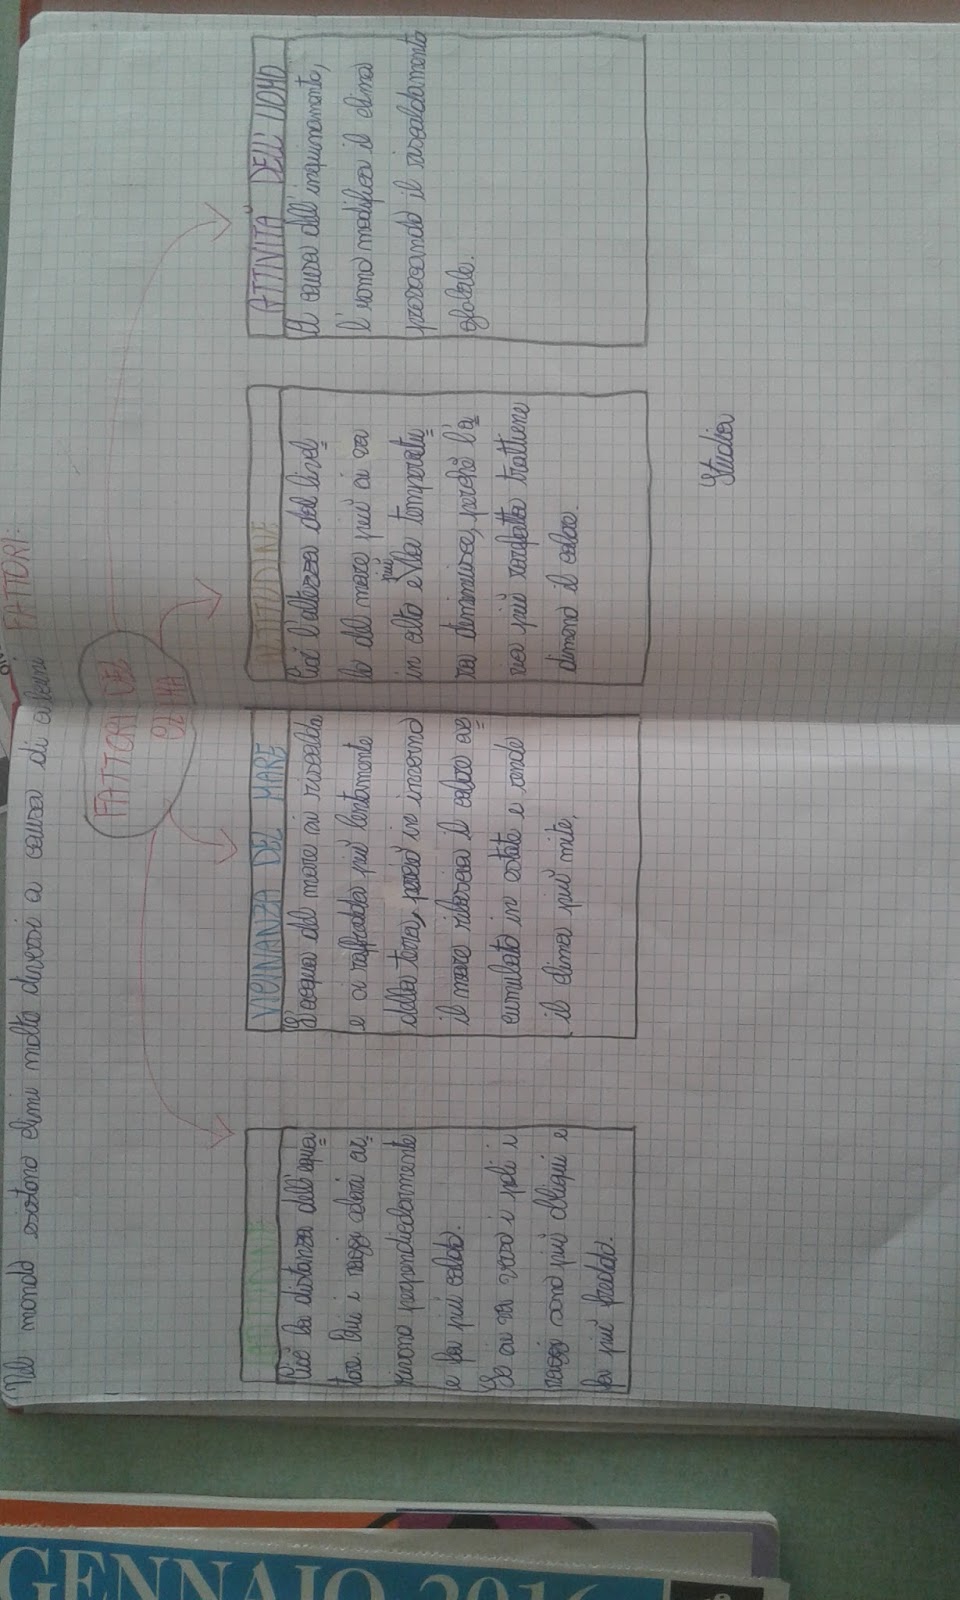 Nel mondo esistono climi molto diversi a causa di alcuni FATTORI:
FATTORI DEL
CLIMA
LATITUDINE
Cioè la distanza dall'equa
tore. Qui i raggi solari ar
rivano perpendicolarmente
e fa più caldo.
Se si va verso i poli i
raggi sono più obliqui e
fa più freddo.
VICINANZA DEL MARE
L'acqua del mare si riscalda
e si raffredda più lentamente
della terra, perciò in inverno
il mare rilascia il calore ac
cumulato in estate e rende
il clima più mite.
ALTITUDINE
Cioè l'altezza dal livel
lo del mare più si va
in alto e più la temperatu
ra diminuisce, perché l'a
ria più rarefatta trattiene
di meno il calore.
ATTIVITÀ DELL'UOMO
A causa dell'inquinamento,
l'uomo modifica il clima
provocando il riscaldamento
globale.
Studia
GENNAIO 2016